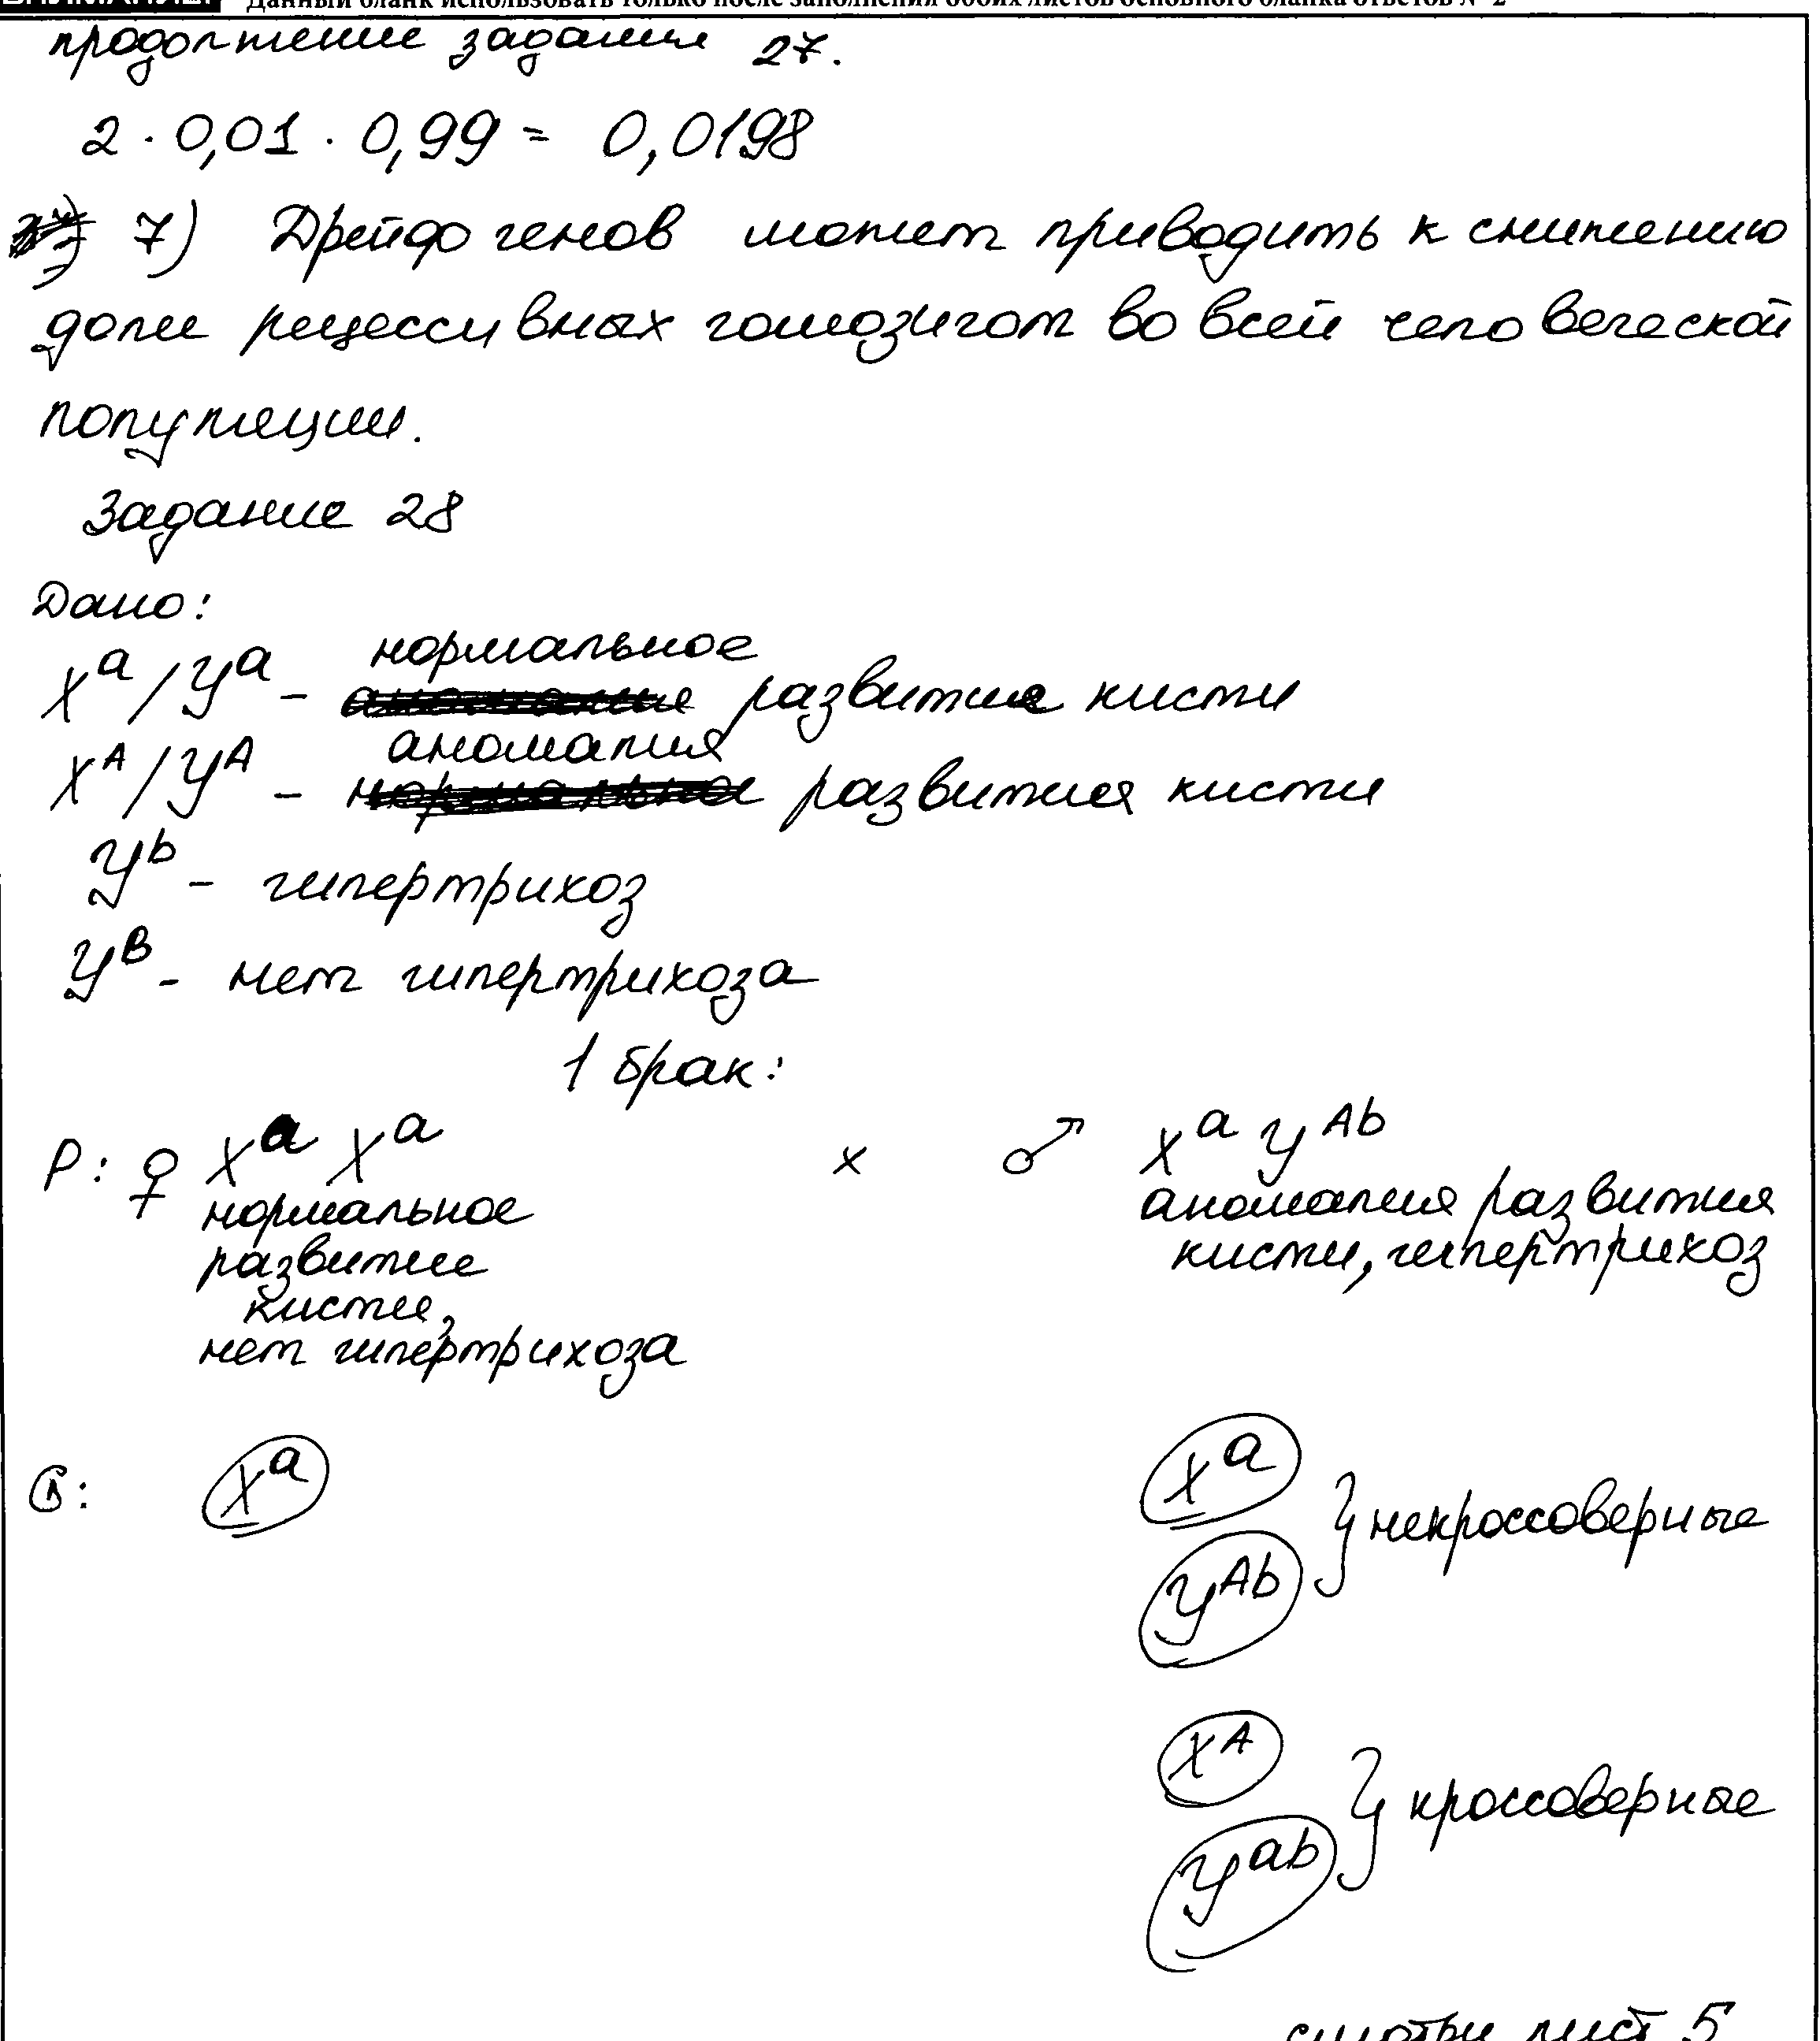 Данный бланк использовать только после заполнения обоих листов основного бланка ответов № 2
продолжение задания 27.
2 · 0,01 · 0,99 = 0,0198
7) Дрейф генов может приводить к снижению
доли рецессивных гомозигот во всей человеческой
популяции.
Задание 28
Дано:
нормальное
Xᵃ/Yᵃ - развитие кисти
аномалия
Xᴬ/Yᴬ - развития кисти
Yᵇ - гипертрихоз
Yᴮ - нет гипертрихоза
1 брак:
P: ♀ Xᵃ Xᵃ x ♂ Xᵃ Yᴬᵇ
нормальное аномалия развития
развитие кисти, гипертрихоз
кисти,
нет гипертрихоза
G: Xᵃ Xᵃ
Yᴬᵇ } некроссоверные
Xᴬ
Yᵃᵇ } кроссоверные
смотри лист 5